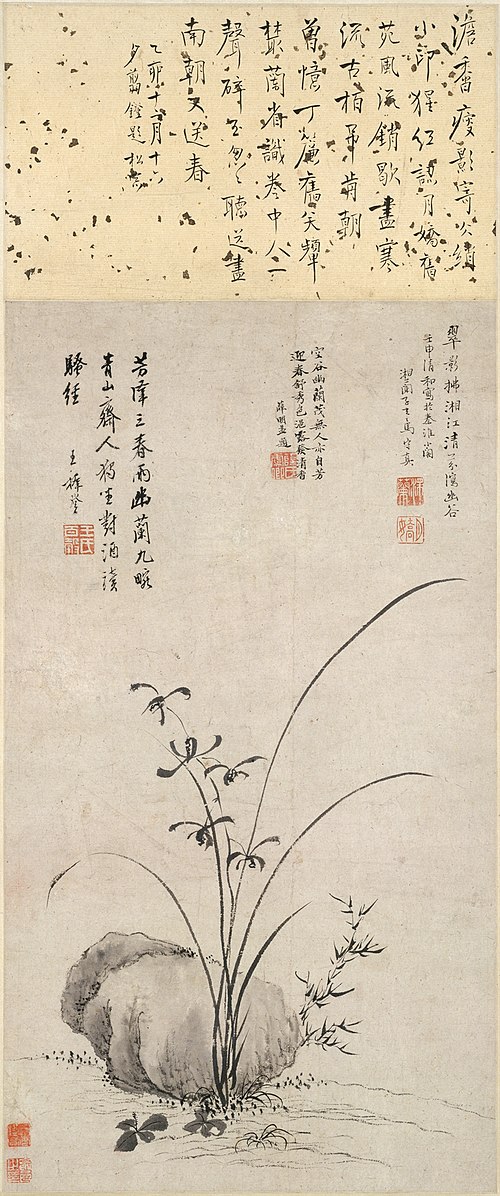 澹香瘦影寄冰綃
小印猩紅認月嬌舊
苑風流銷歇盡寒
流古柏弔前朝
曾憶丁簾舊笑顰
叢蘭省識卷中人一
聲碎玉匆匆聽送盡
南朝又送春
乙卯十一月十六
夕翦鐙題
翠影拂湘江清芬瀉幽谷
壬申清和寫於秦淮閣
湘蘭子馬守真
空谷幽蘭茂無人亦自芳
迎春舒秀色浥露發清香
薛明益題
芳澤三春雨幽蘭九畹
青山齋人獨坐對酒讀
騷經
王穉登
王氏百穀